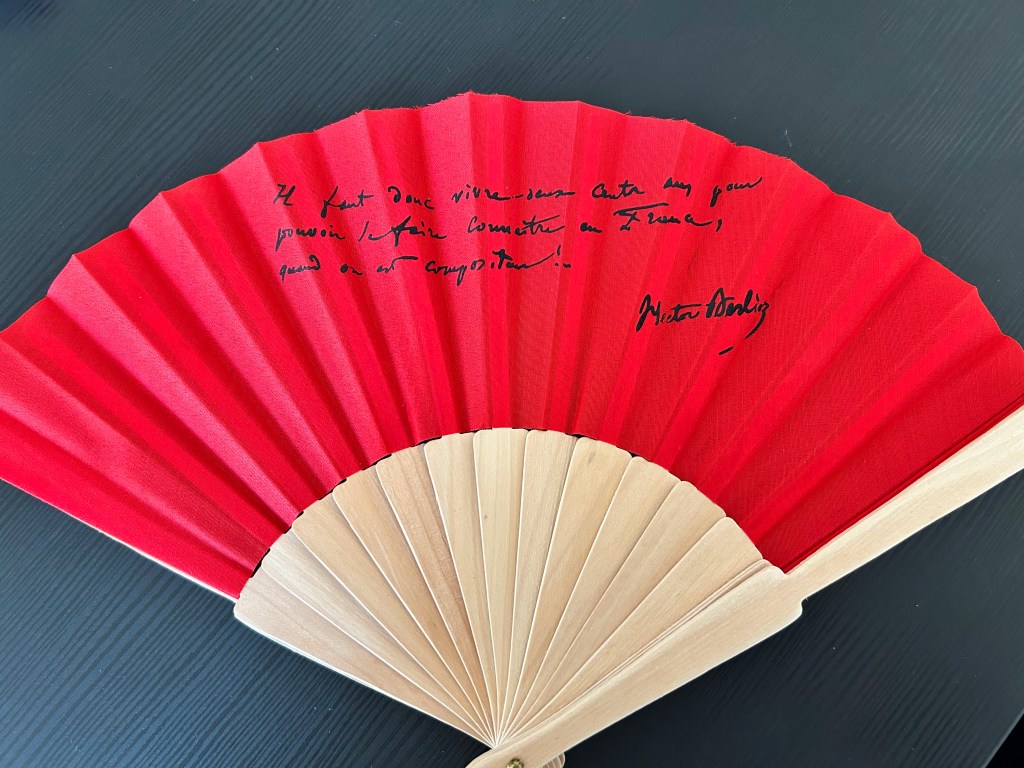 Il faut donc vivre deux cents ans pour
pouvoir se faire connaître en France,
quand on est compositeur!..
Hector Berlioz